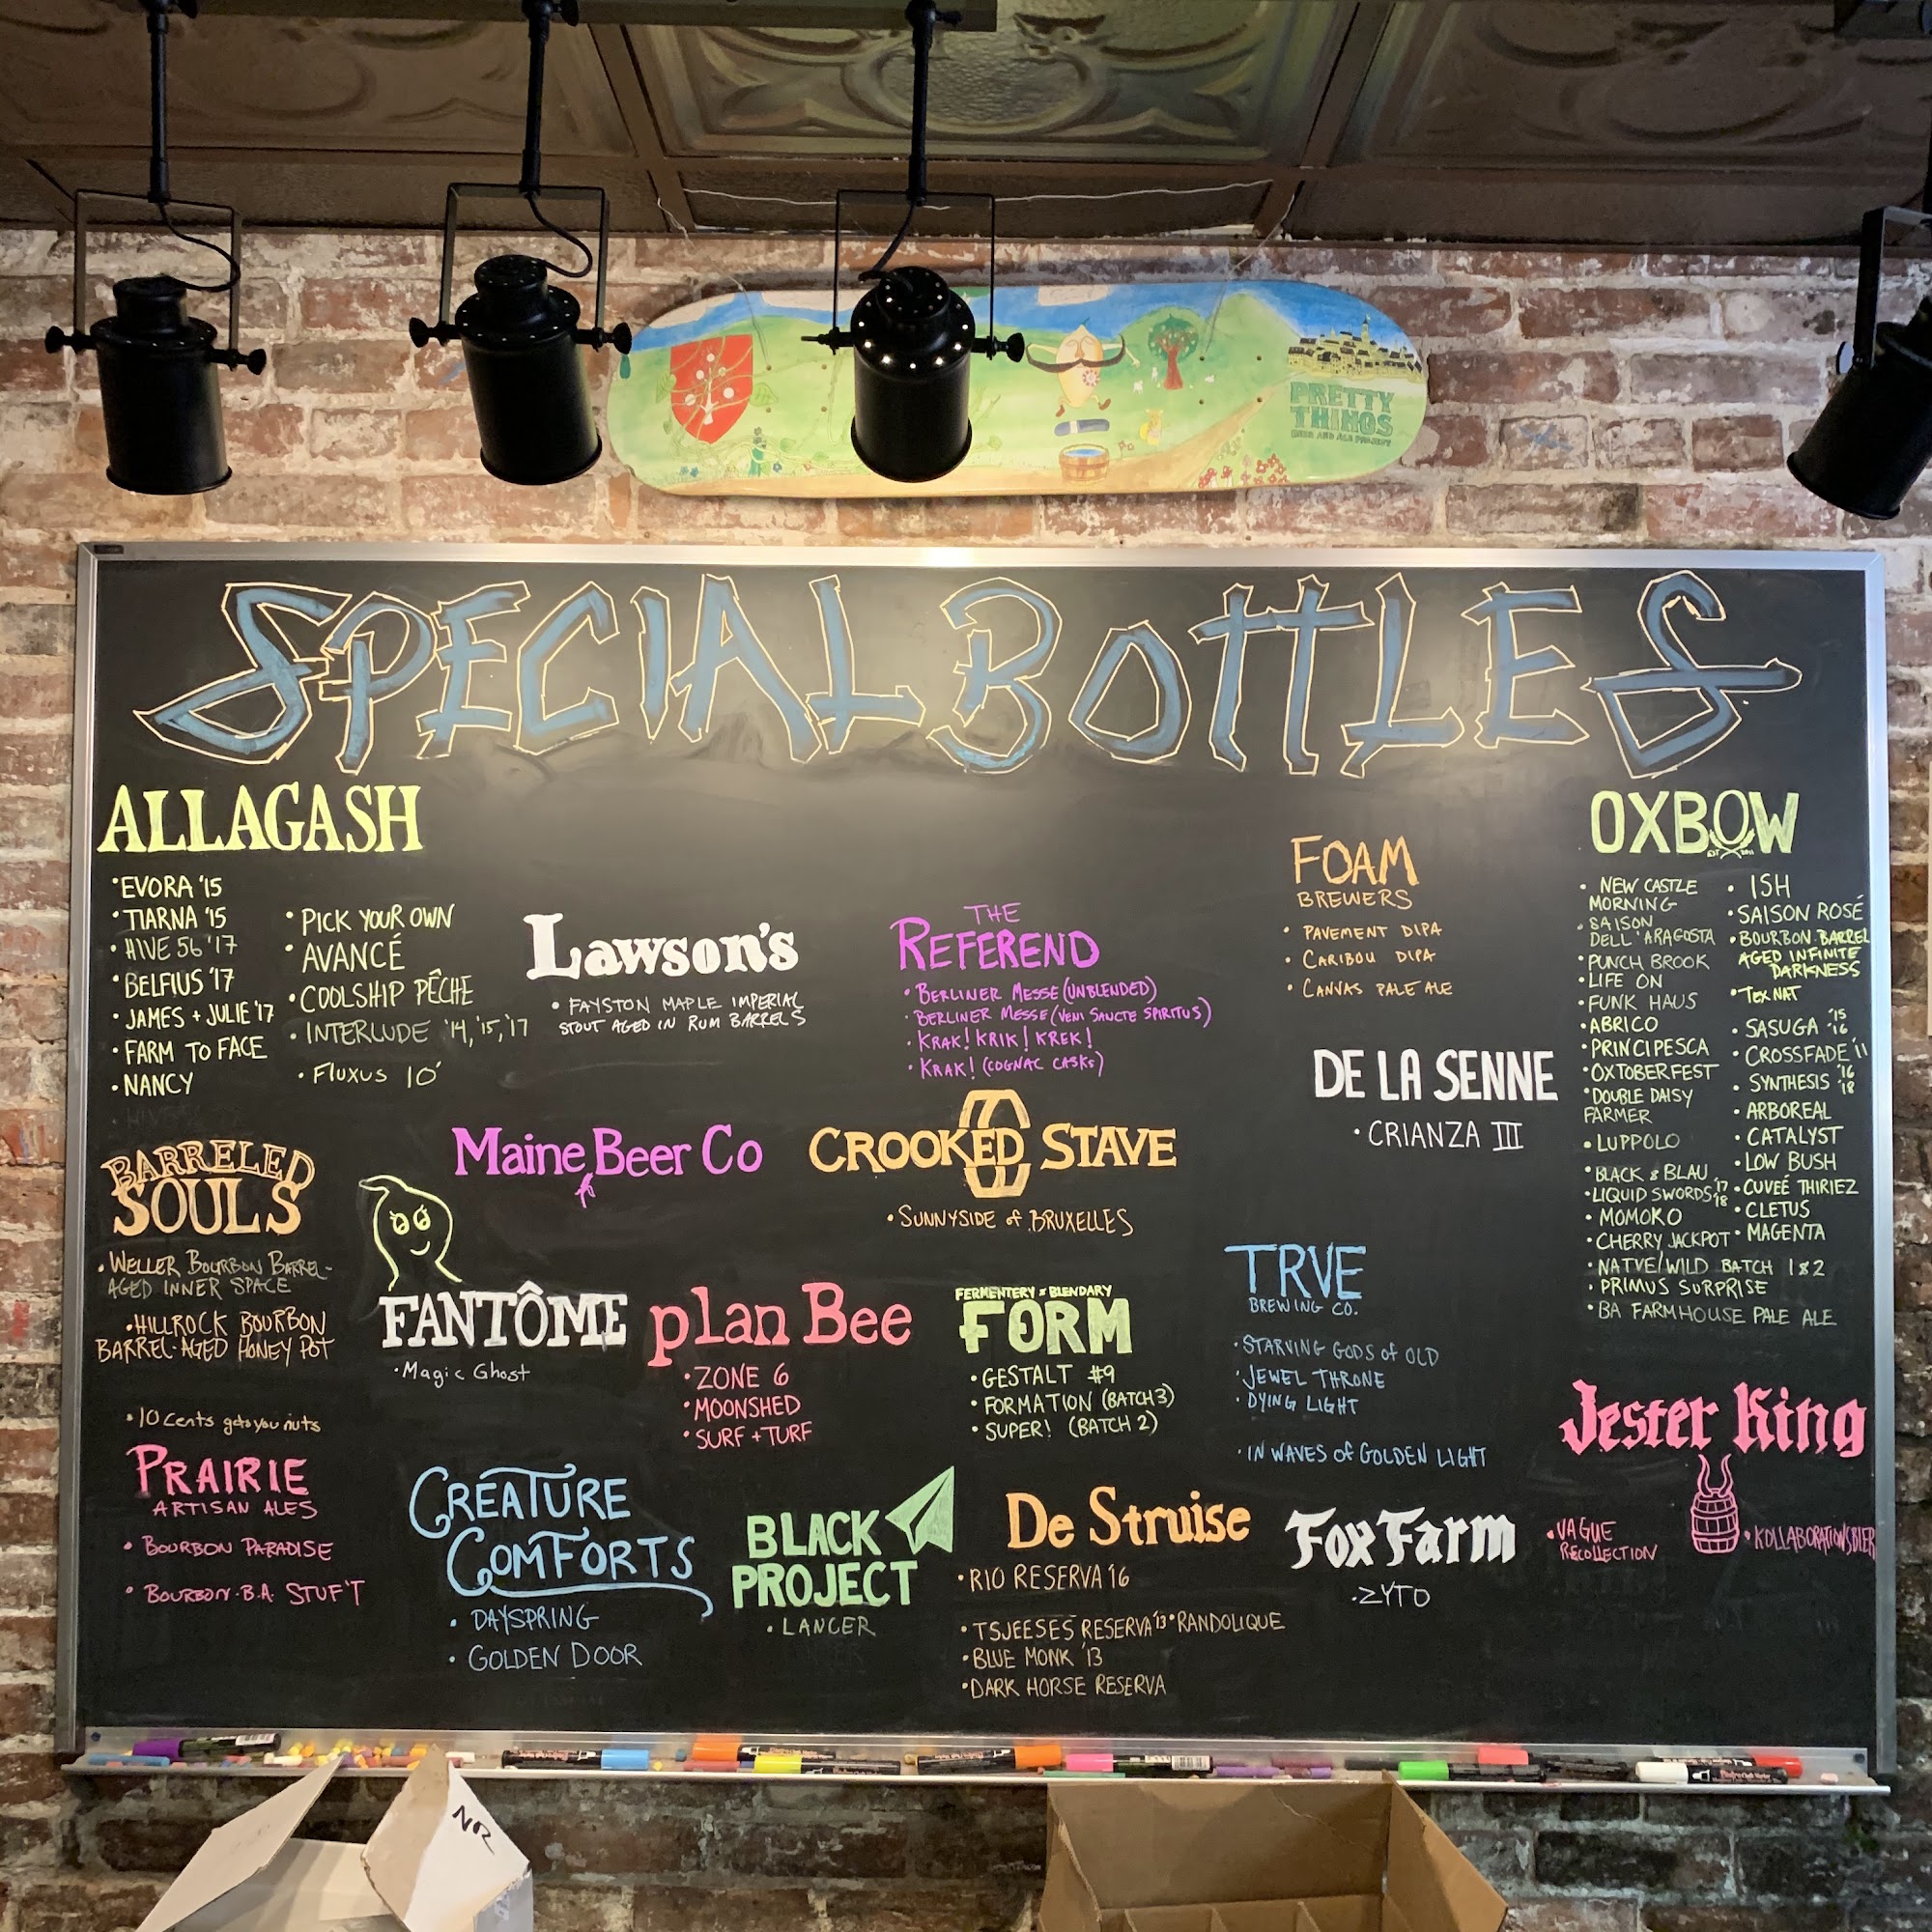 PRETTY
THINGS
BEER AND ALE PROJECT
SPECIAL BOTTLES
ALLAGASH
•EVORA '15
•TIARNA '15
•HIVE 56 '17
•BELFIUS '17
•JAMES + JULIE '17
•FARM TO FACE
•NANCY
•PICK YOUR OWN
•AVANCÉ
•COOLSHIP PÊCHE
•INTERLUDE '14,'15,'17
•FLUXUS 10'
Lawson's
•FAYSTON MAPLE IMPERIAL
STOUT AGED IN RUM BARRELS
THE
REFEREND
•BERLINER MESSE (UNBLENDED)
•BERLINER MESSE (VENI SANCTE SPIRITUS)
•KRAK! KRIK! KREK!
•KRAK! (COGNAC CASKS)
FOAM
BREWERS
•PAVEMENT DIPA
•CARIBOU DIPA
•CANVAS PALE ALE
OXBOW
•NEW CASTLE
MORNING
•SAISON
DELL'ARAGOSTA
•PUNCH BROOK
•LIFE ON
•FUNK HAUS
•ABRICO
•PRINCIPESCA
•OXTOBERFEST
•DOUBLE DAISY
FARMER
•LUPPOLO
•BLACK & BLAU
•LIQUID SWORDS '17 '18
•MOMOKO
•CHERRY JACKPOT
•NATVE/WILD BATCH 1&2
•PRIMUS SURPRISE
•BA FARMHOUSE PALE ALE
•ISH
•SAISON ROSÉ
•BOURBON BARREL
AGED INFINITE
DARKNESS
•TEX NAT
•SASUGA '15 '16
•CROSSFADE '11
•SYNTHESIS '16 '18
•ARBOREAL
•CATALYST
•LOW BUSH
•CUVEÉ THIRIEZ
•CLETUS
•MAGENTA
DE LA SENNE
•CRIANZA III
BARRELED
SOULS
•WELLER BOURBON BARREL-
AGED INNER SPACE
•HILLROCK BOURBON
BARREL-AGED HONEY POT
Maine Beer Co
CROOKED STAVE
•SUNNYSIDE of BRUXELLES
FANTÔME
•Magic Ghost
plan Bee
•ZONE 6
•MOONSHED
•SURF + TURF
FERMENTERY & BLENDARY
FORM
•GESTALT #9
•FORMATION (BATCH 3)
•SUPER! (BATCH 2)
TRVE
BREWING CO.
•STARVING GODS of OLD
•JEWEL THRONE
•DYING LIGHT
•IN WAVES of GOLDEN LIGHT
•10 cents gets you nuts
PRAIRIE
ARTISAN ALES
•BOURBON PARADISE
•BOURBON B.A. STUF'T
CREATURE
COMFORTS
•DAYSPRING
•GOLDEN DOOR
BLACK
PROJECT
•LANCER
De Struise
•RIO RESERVA '16
•TSJEESES RESERVA '13 •RANDOLIQUE
•BLUE MONK '13
•DARK HORSE RESERVA
Fox Farm
•ZYTO
Jester King
•VAGUE
RECOLLECTION
•KOLLABORATIONSBIER
NR